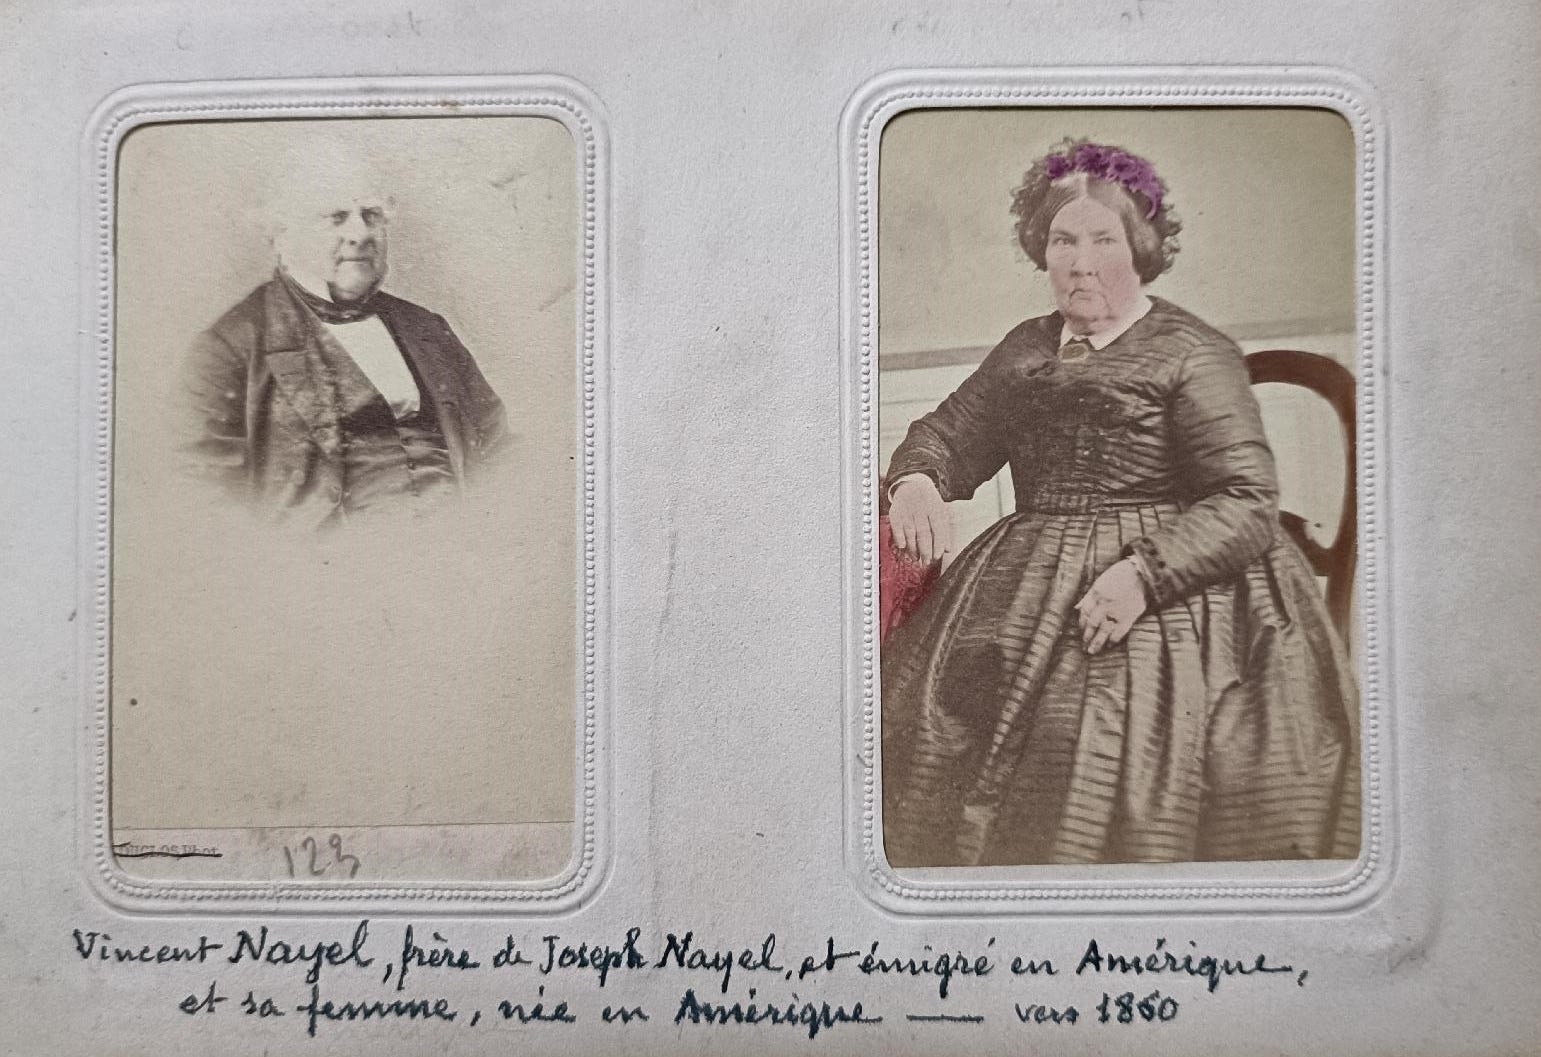 DUCLOS Phot.
123
Vincent Nayel, frère de Joseph Nayel, et émigré en Amérique,
et sa femme, née en Amérique — vers 1860